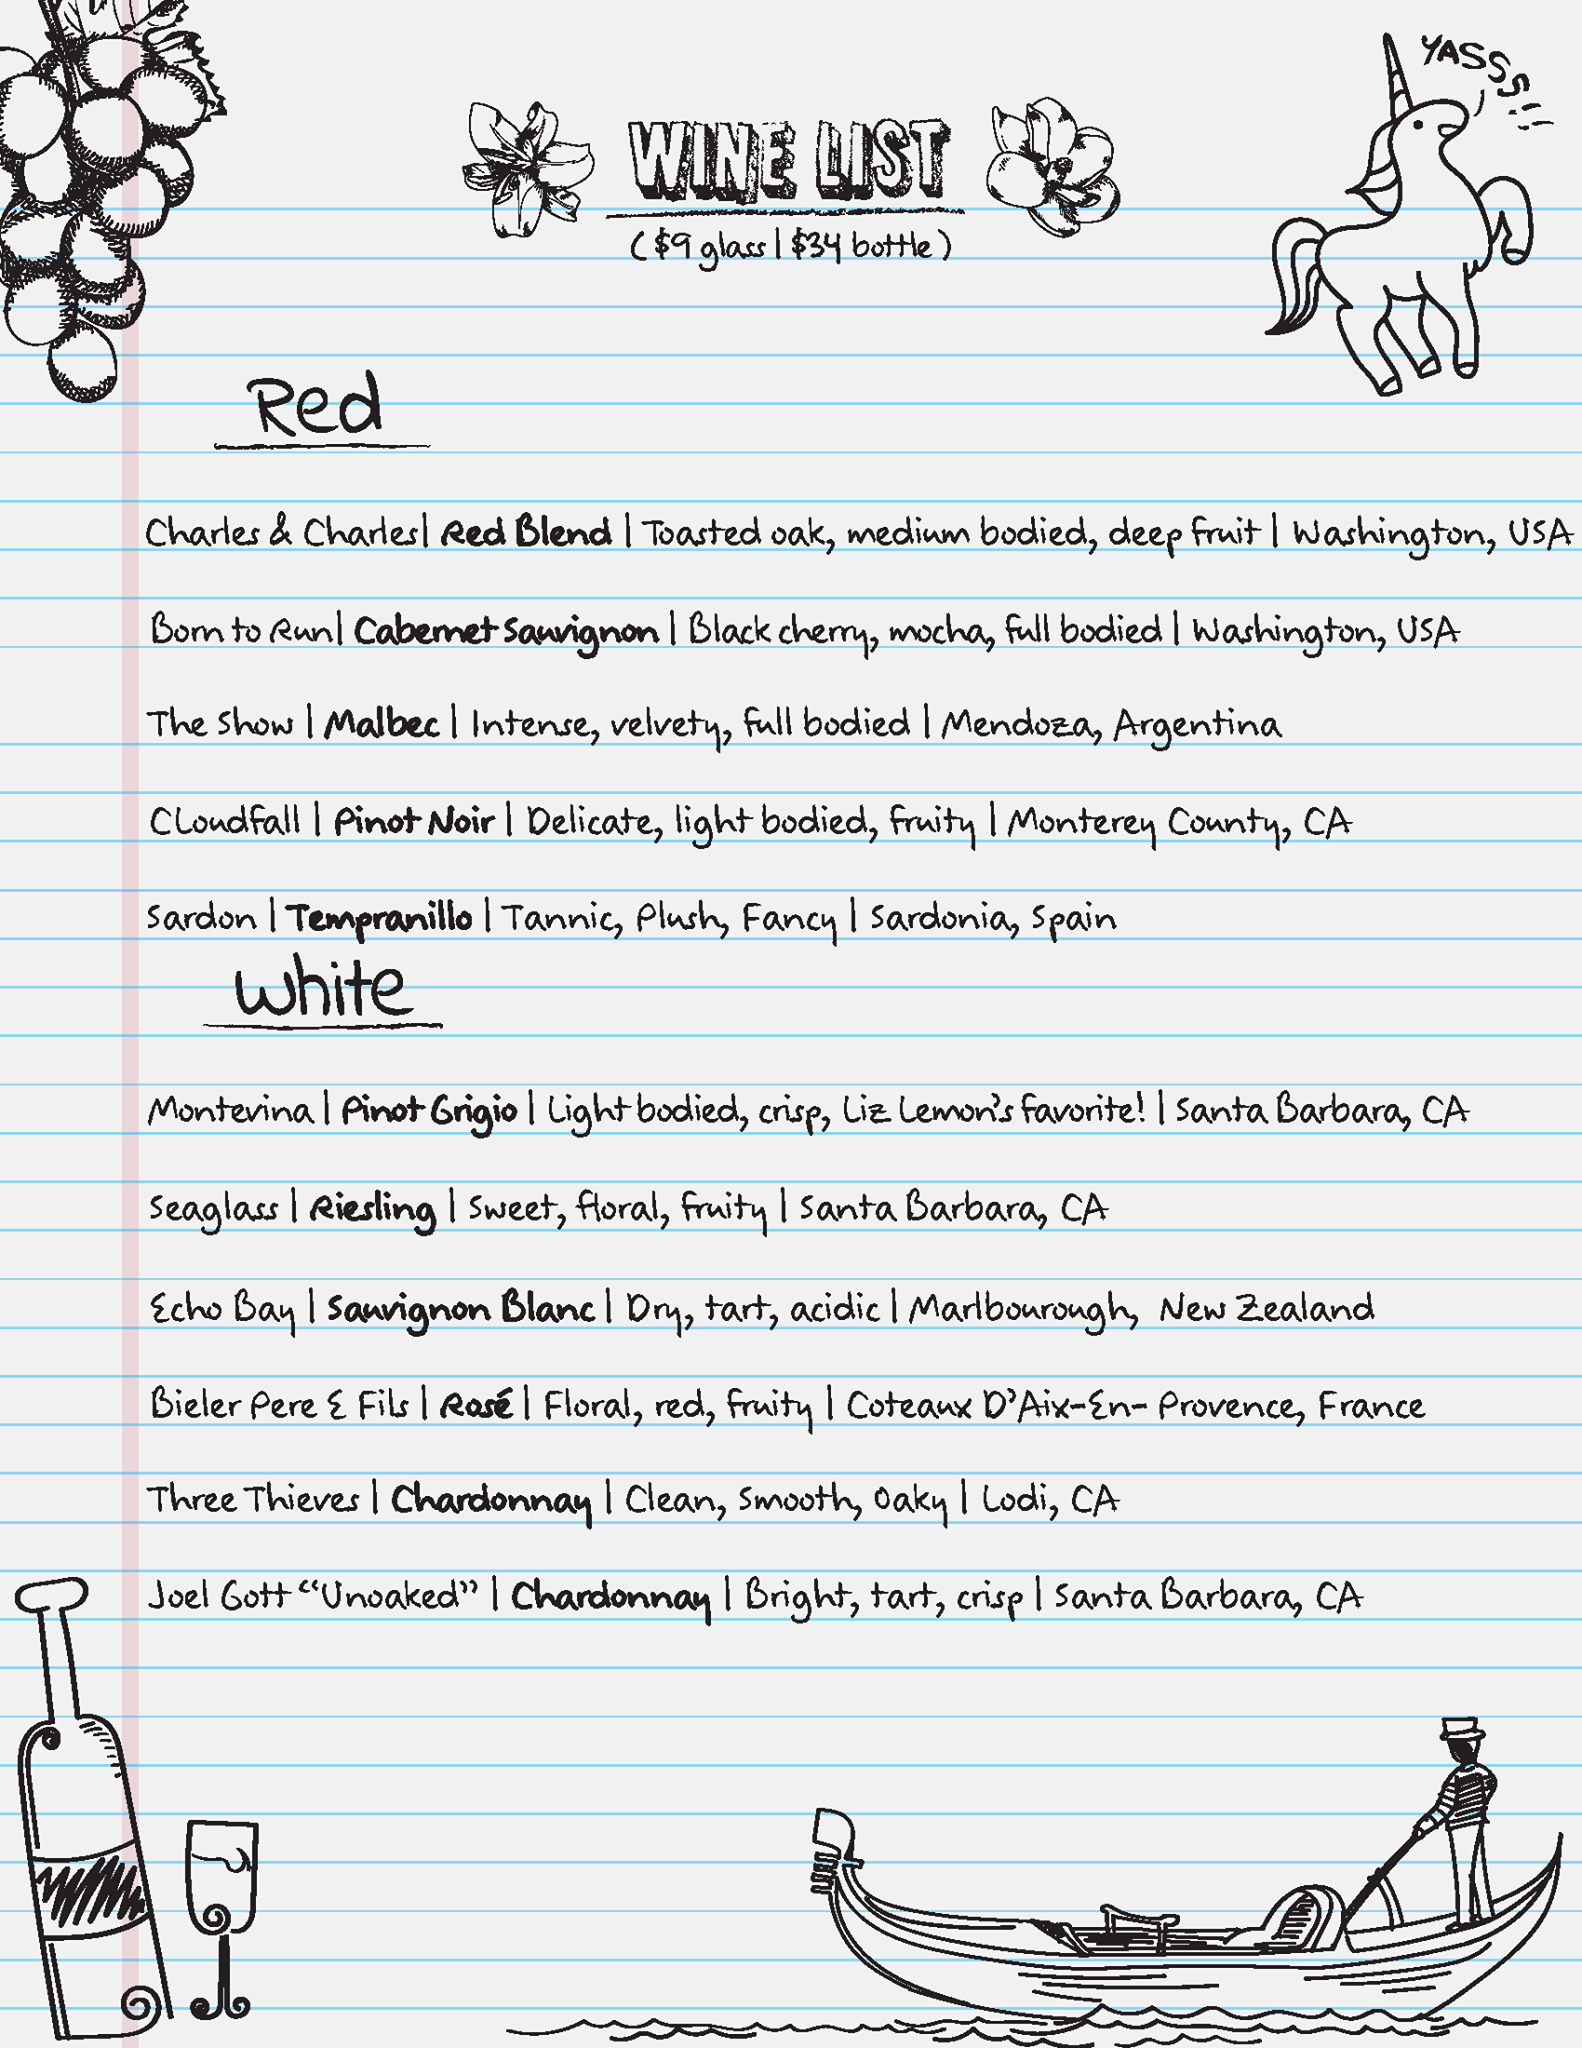 YASSS!
WINE LIST
( $9 glass | $34 bottle )
Red
Charles & Charles| Red Blend | Toasted oak, medium bodied, deep fruit | Washington, USA
Born to Run| Cabernet Sauvignon | Black cherry, mocha, full bodied | Washington, USA
The Show | Malbec | Intense, velvety, full bodied | Mendoza, Argentina
Cloudfall | Pinot Noir | Delicate, light bodied, fruity | Monterey County, CA
Sardon | Tempranillo | Tannic, Plush, Fancy | Sardonia, Spain
White
Montevina | Pinot Grigio | Light bodied, crisp, Liz Lemon's favorite! | Santa Barbara, CA
Seaglass | Riesling | Sweet, floral, fruity | Santa Barbara, CA
Echo Bay | Sauvignon Blanc | Dry, tart, acidic | Marlbourough, New Zealand
Bieler Pere & Fils | Rosé | Floral, red, fruity | Coteaux D'Aix-En- Provence, France
Three Thieves | Chardonnay | Clean, Smooth, Oaky | Lodi, CA
Joel Gott “Unoaked” | Chardonnay | Bright, tart, crisp | Santa Barbara, CA